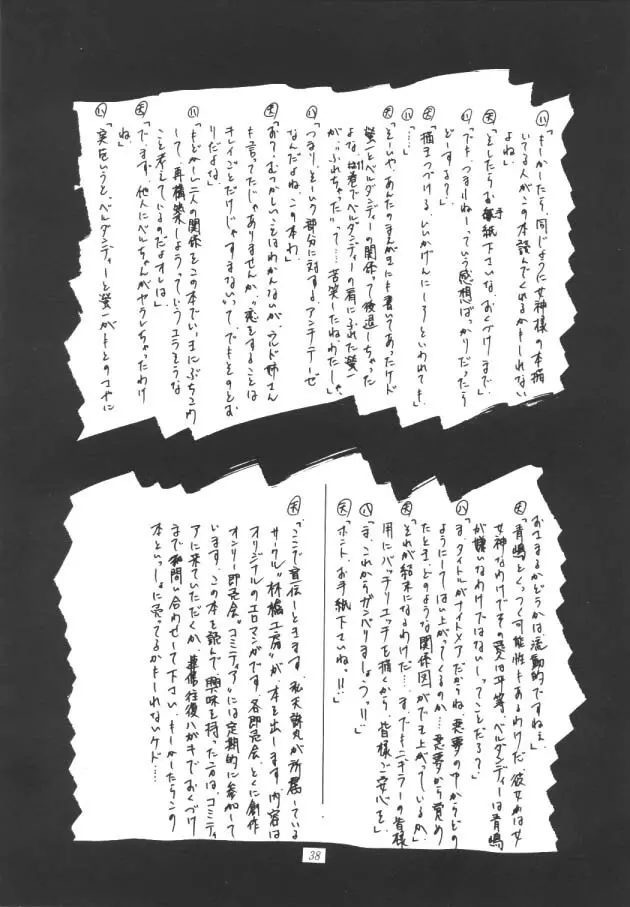 ㋩「もしかしたら、同じように女神様の本描
いてる人がこの本読んでくれるかもしれない
よね。」
㋝「そしたらお手紙下さいな、おくづけまで」
㋩「でも、つまんねーっていう感想ばっかりだったら
どーする?」
㋝「描きつづける、いいかげんにしろといわれても」
㋩「…」
㋝「そーいやあんたのまんがにも書いてあったケド
螢一とベルダンディーの関係って後退しちゃった
よな、巻でベルダンディーの肩にふれた螢一
が、〝ふれちゃった〟って…苦笑したねわたしゃ」
㋩「つまり、そーいう部分に対するアンチテーゼ
なんだよね、この本わ」
㋝「おう?むつかしいことはわかんないが、ウルド姉さん
も言ってたじゃありませんか、〝恋をすることは
キレイごとだけじゃすまない〟って、でもそのとお
りだよな」
㋩「もどかしい二人の関係をこの本でいっきにぶちこわ
して、再構築しようっていうエラそうな
こと考えているのだよオレは」
㋝「でもす、他人にベルちゃんがヤラレちゃったわけ
ね」
㋩「実をいうと、ベルダンディーと螢一がもとのさやに
おさまるかどうかは流動的ですねぇ」
㋝「青嶋とくっつく可能性もあるわけだ、彼女は女
女神なわけでその愛は平等、ベルダンディーは青嶋
が嫌いなわけではないってことだろ?」
㋩「ま、タイトルがナイトメアだからね、悪夢の中からどの
ようにして、はい上がってくるのか…悪夢から覚め
たとき、どのような関係図ができ上がっているか」
㋝「それが結末になるわけだ…、すでにキニナラーの皆様
用にバッチリエッチを描くから、皆様ご安心を」
㋩「ま、これからガンバりましょうっ!!」
㋝「ホント、お手紙下さいね。!!」
㋝「ここで宣伝しときます、私天誅丸が所属している
サークル〝林檎工房〟が本を出します、内容は
オリジナルのエロマンガです。各即売会、とくに創作
オンリー即売会〝コミティア〟には定期的に参加して
います。この本を読んで、興味を持った方は、コミティ
アに来ていただくか、葉信往復ハガキでおくづけ
まで御問い合わせて下さい、もしかしたらこの
本といっしょに売ってるかもしれないケド…
38